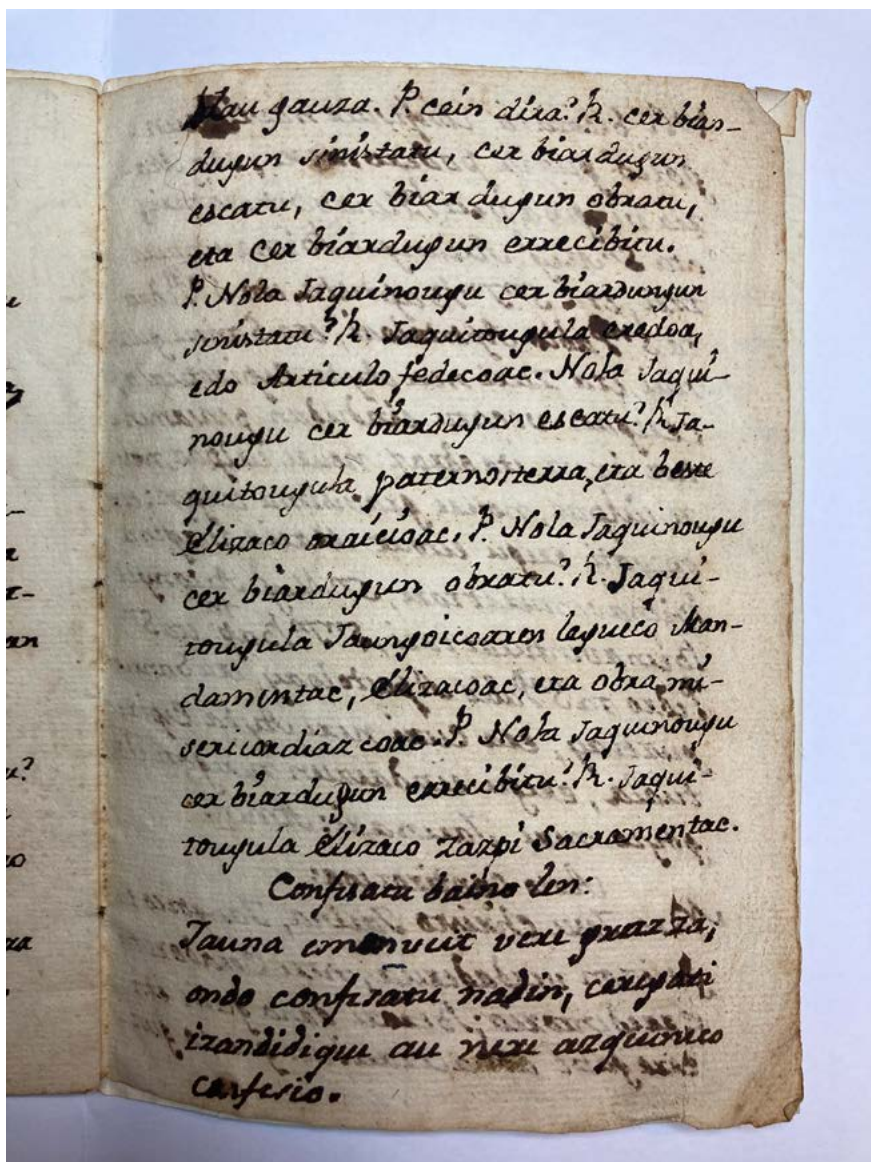 lau gauza. P. cein dira? R. cer biar-
dugun sinistatu, cer biardugun
escatu, cer biar dugun obratu,
eta cer biardugun errecibitu.
P. Nola Jaquinougu cer biardungun
sinistatu? R. Jaquitougula credoa,
edo Articulo fedecoac. Nola Jaqui-
nougu cer biardugun escatu? R. Ja-
quitougula paternosterra, eta beste
Elizaco oraicioac. P. Nola Jaquinougu
cer biardugun obratu? R. Jaqui-
tougula Jaungoicoaren legueco Man-
damentac, Elizacoac, eta obra mi-
sericordiazcoac. P. Nola Jaquinougu
cer biardugun errecibitu? R. Jaqui-
tougula Elizaco zazpi Sacramentac.
Confesatu baino len:
Jauna eman vere grazza,
ondo confesatu nadin,
izandidiqui au nere azqueneco
confesio.